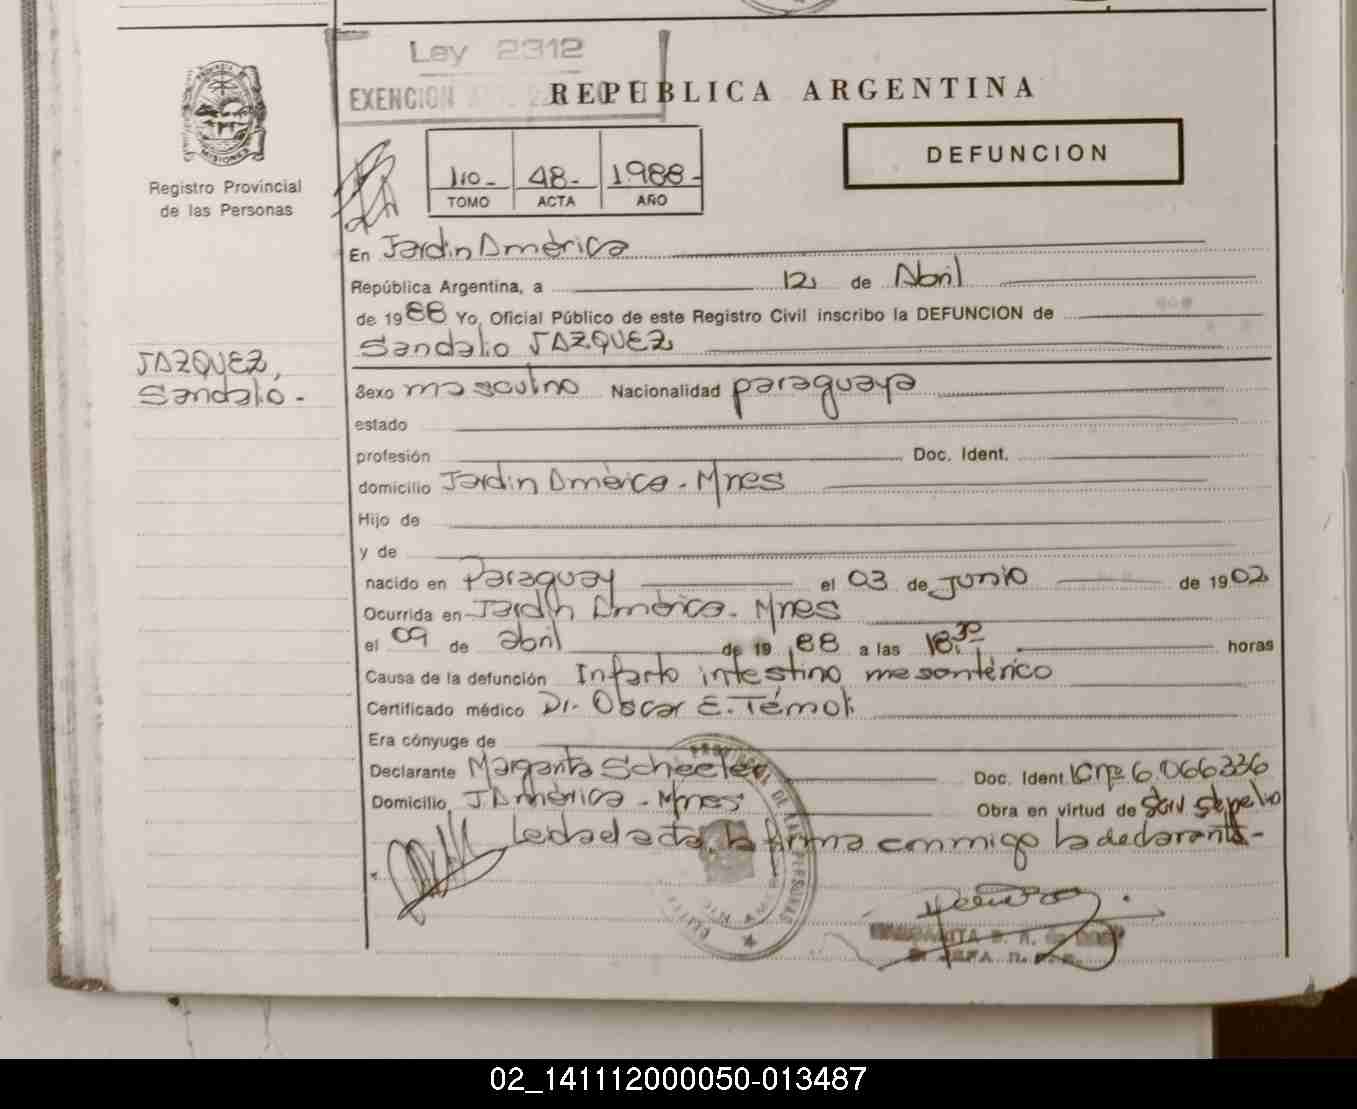 Ley 2312
EXENCION
REPUBLICA ARGENTINA
MISIONES
Registro Provincial
de las Personas
110- 48- 1988-
TOMO ACTA AÑO
DEFUNCION
En Jardin América
República Argentina, a 12 de Abril
de 1988 Yo, Oficial Público de este Registro Civil inscribo la DEFUNCION de
Sandalio VAZQUEZ
VAZQUEZ,
Sandalio-
Sexo masculino Nacionalidad paraguaya
estado
profesión Doc. Ident.
domicilio Jardin América - Mnes
Hijo de
y de
nacido en Paraguay el 03 de Junio de 1902
Ocurrida en Jardin América - Mnes
el 09 de abril de 19 88 a las 18:30 horas
Causa de la defunción Infarto intestino mesontérico
Certificado médico Dr. Oscar E. Témoli
Era cónyuge de
Declarante Margarita Scheeler Doc. Ident. IC nº 6.066336
Domicilio J América - Mnes Obra en virtud de
Leida el acta, la firma conmigo la declarante-
02_141112000050-013487